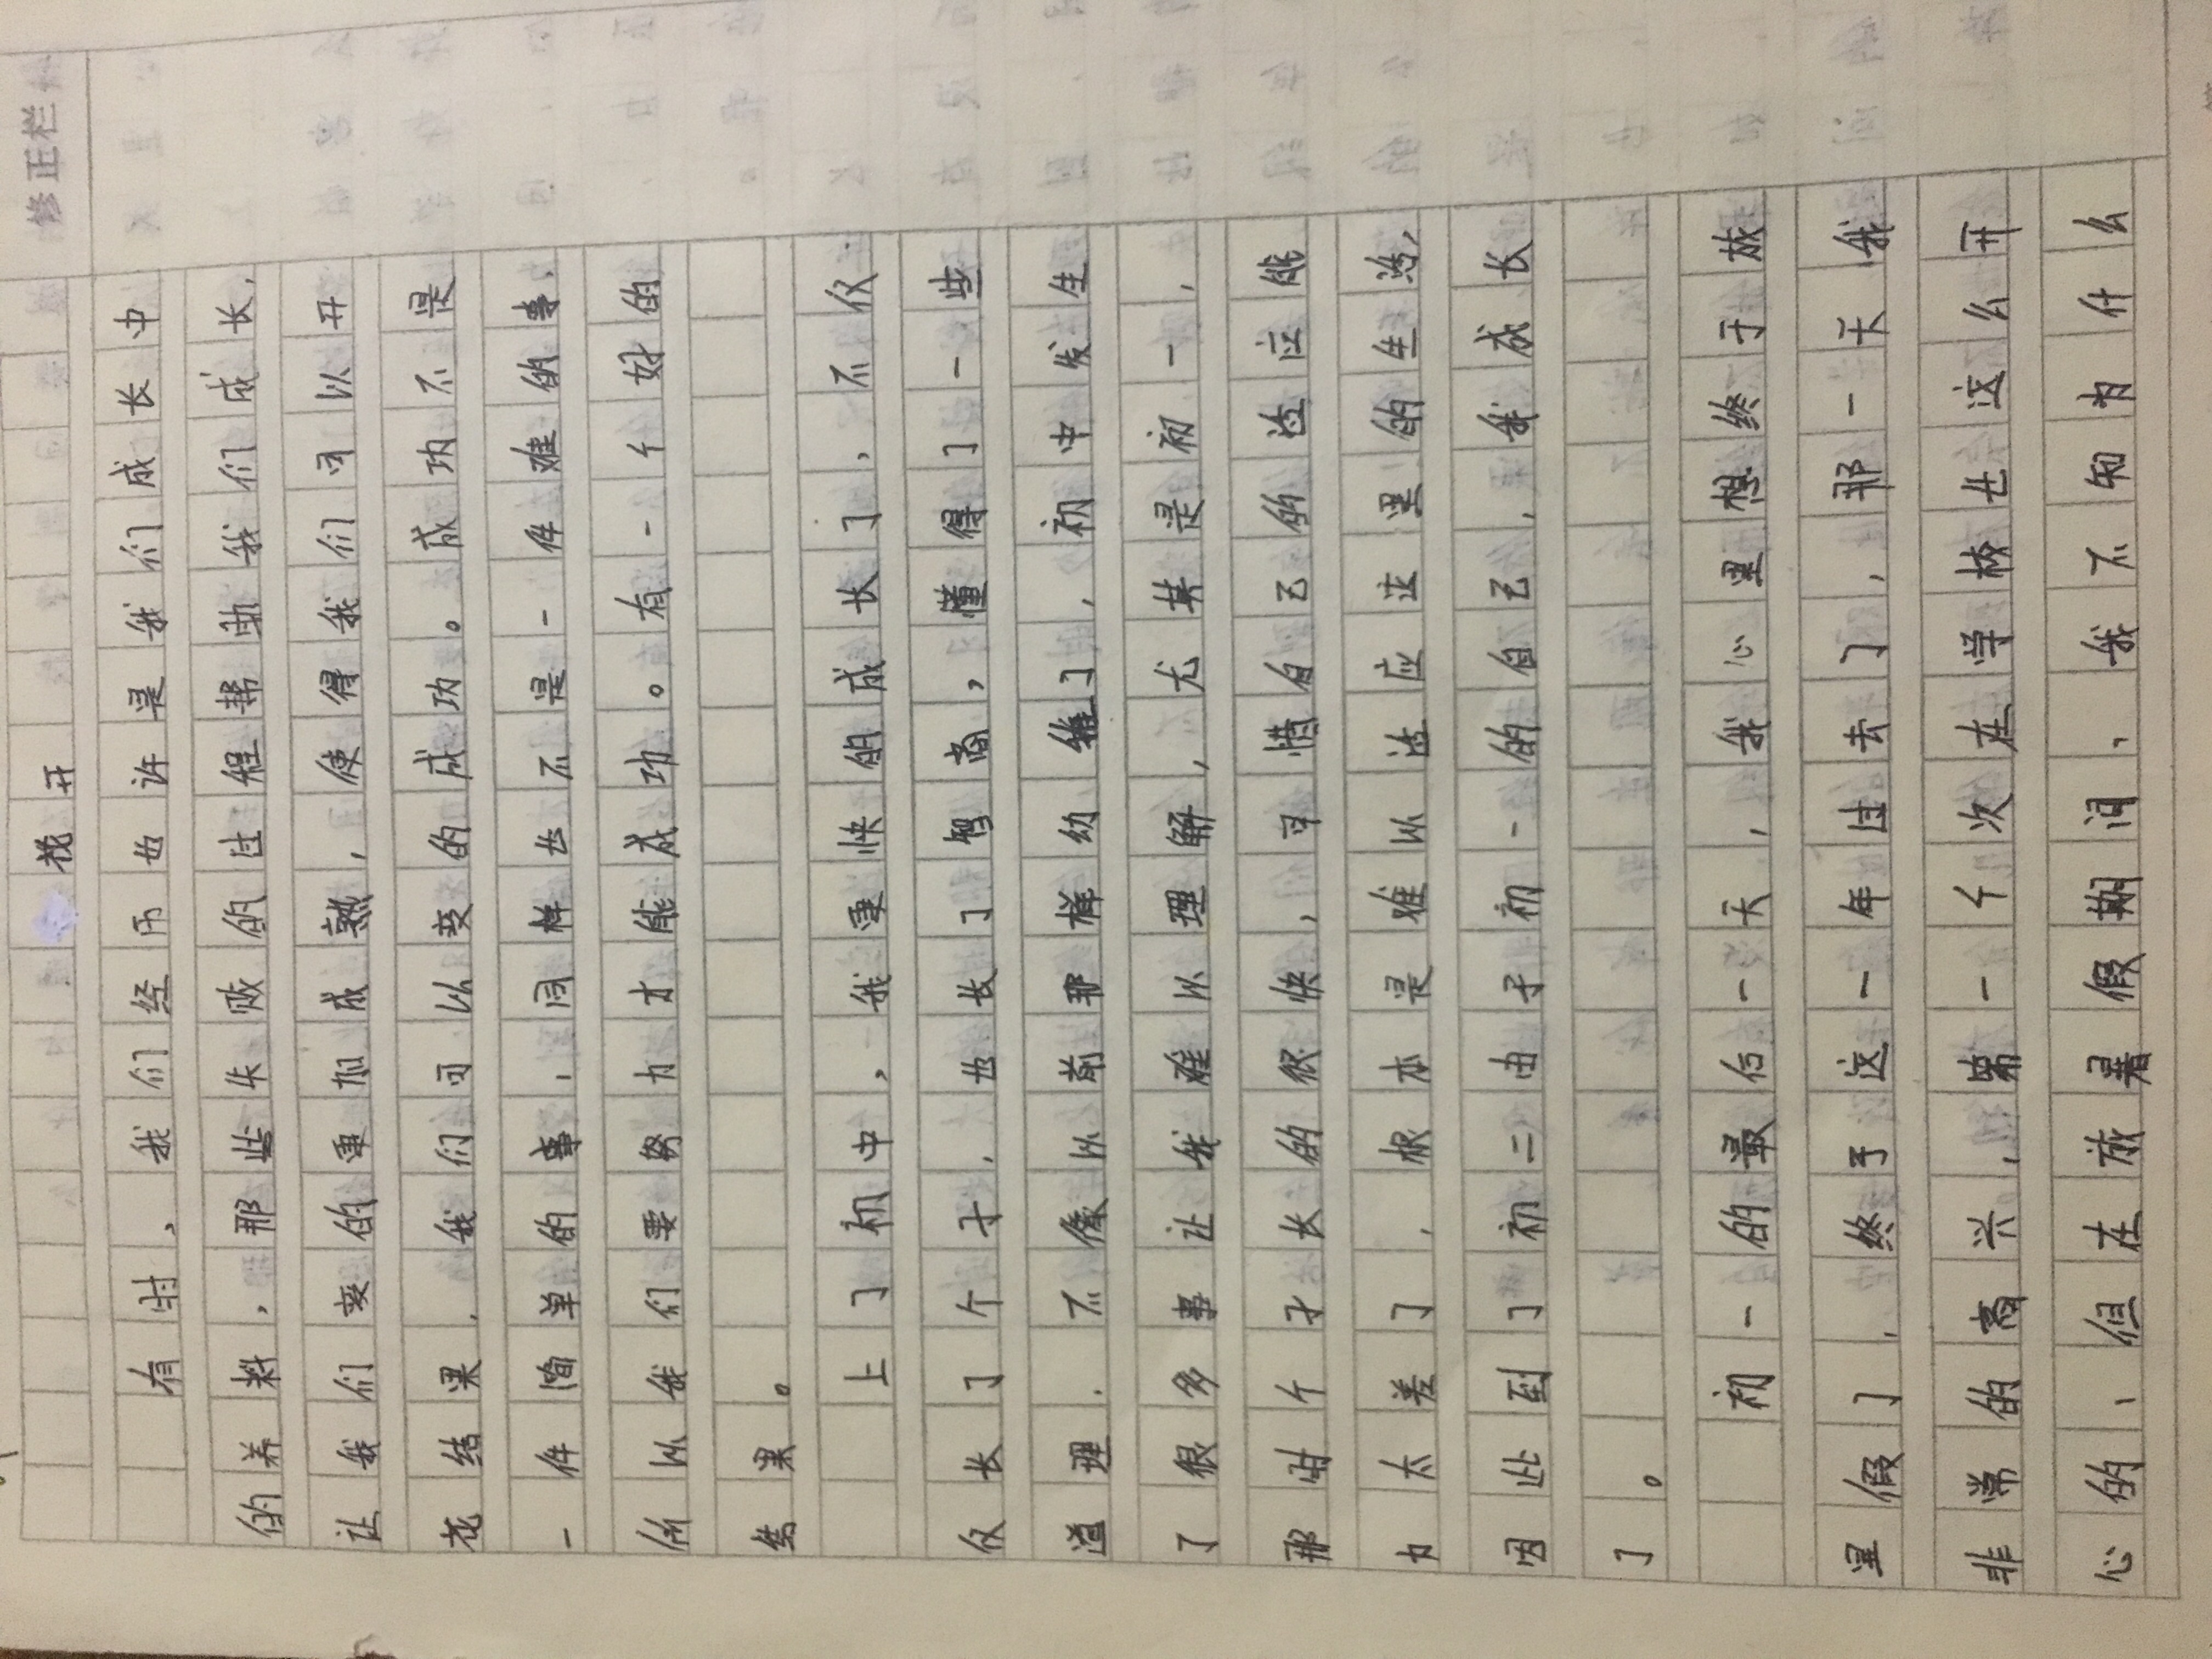 修正栏
开
有时、我们经历也许是我们成长中
的养料，那些失败的过程帮助我们成长，
让我们变的更加成熟，使得我们可以开
花结果，我们可以变的成功。成功不是
一件简单的事，同样也不是一件难的事，
所以我们要努力才能成功。有一个好的
结果。
上了初中，我更快的成长了，不仅
仅长了个子，也长了智商，懂得了一些
道理，不像以前那样幼稚了，初中发生
了很多事让我难以理解，尤其是初一，
那时个子长的很快，可惜自己的适应能
力太差了，根本是难以适应这里的生活，
因此到了初二由于初一的自己，我成长
了。
初一的最后一天，我心里想终于放
假了，终于这一年过去了，那一天我
非常的高兴，第一个次在学校也这么开
心的，但在放暑假期间，我不知为什么